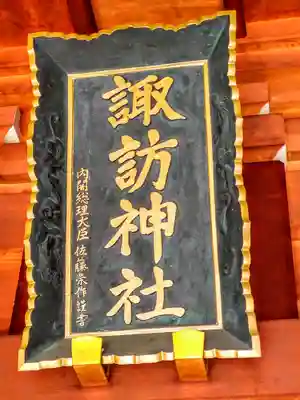 諏訪神社
内閣総理大臣 佐藤栄作謹書